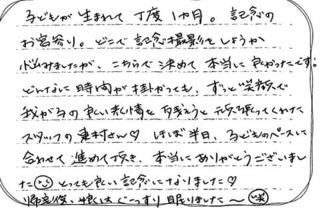 子どもが生まれて丁度1カ月。記念の
お宮参り。どこで記念撮影をしようか
悩みましたが、こちらで決めて本当に良かったです。
どんなに時間が掛かっても、ずっと笑顔で
我が子の良い表情を撮ろうと頑張ってくれた
スタッフの奥村さん♡ ほぼ半日、子どものペースに
合わせて進めて頂き、本当にありがとうございまし
た☺ とっても良い記念になりました♡
帰宅後、娘はぐっすり眠りました〜